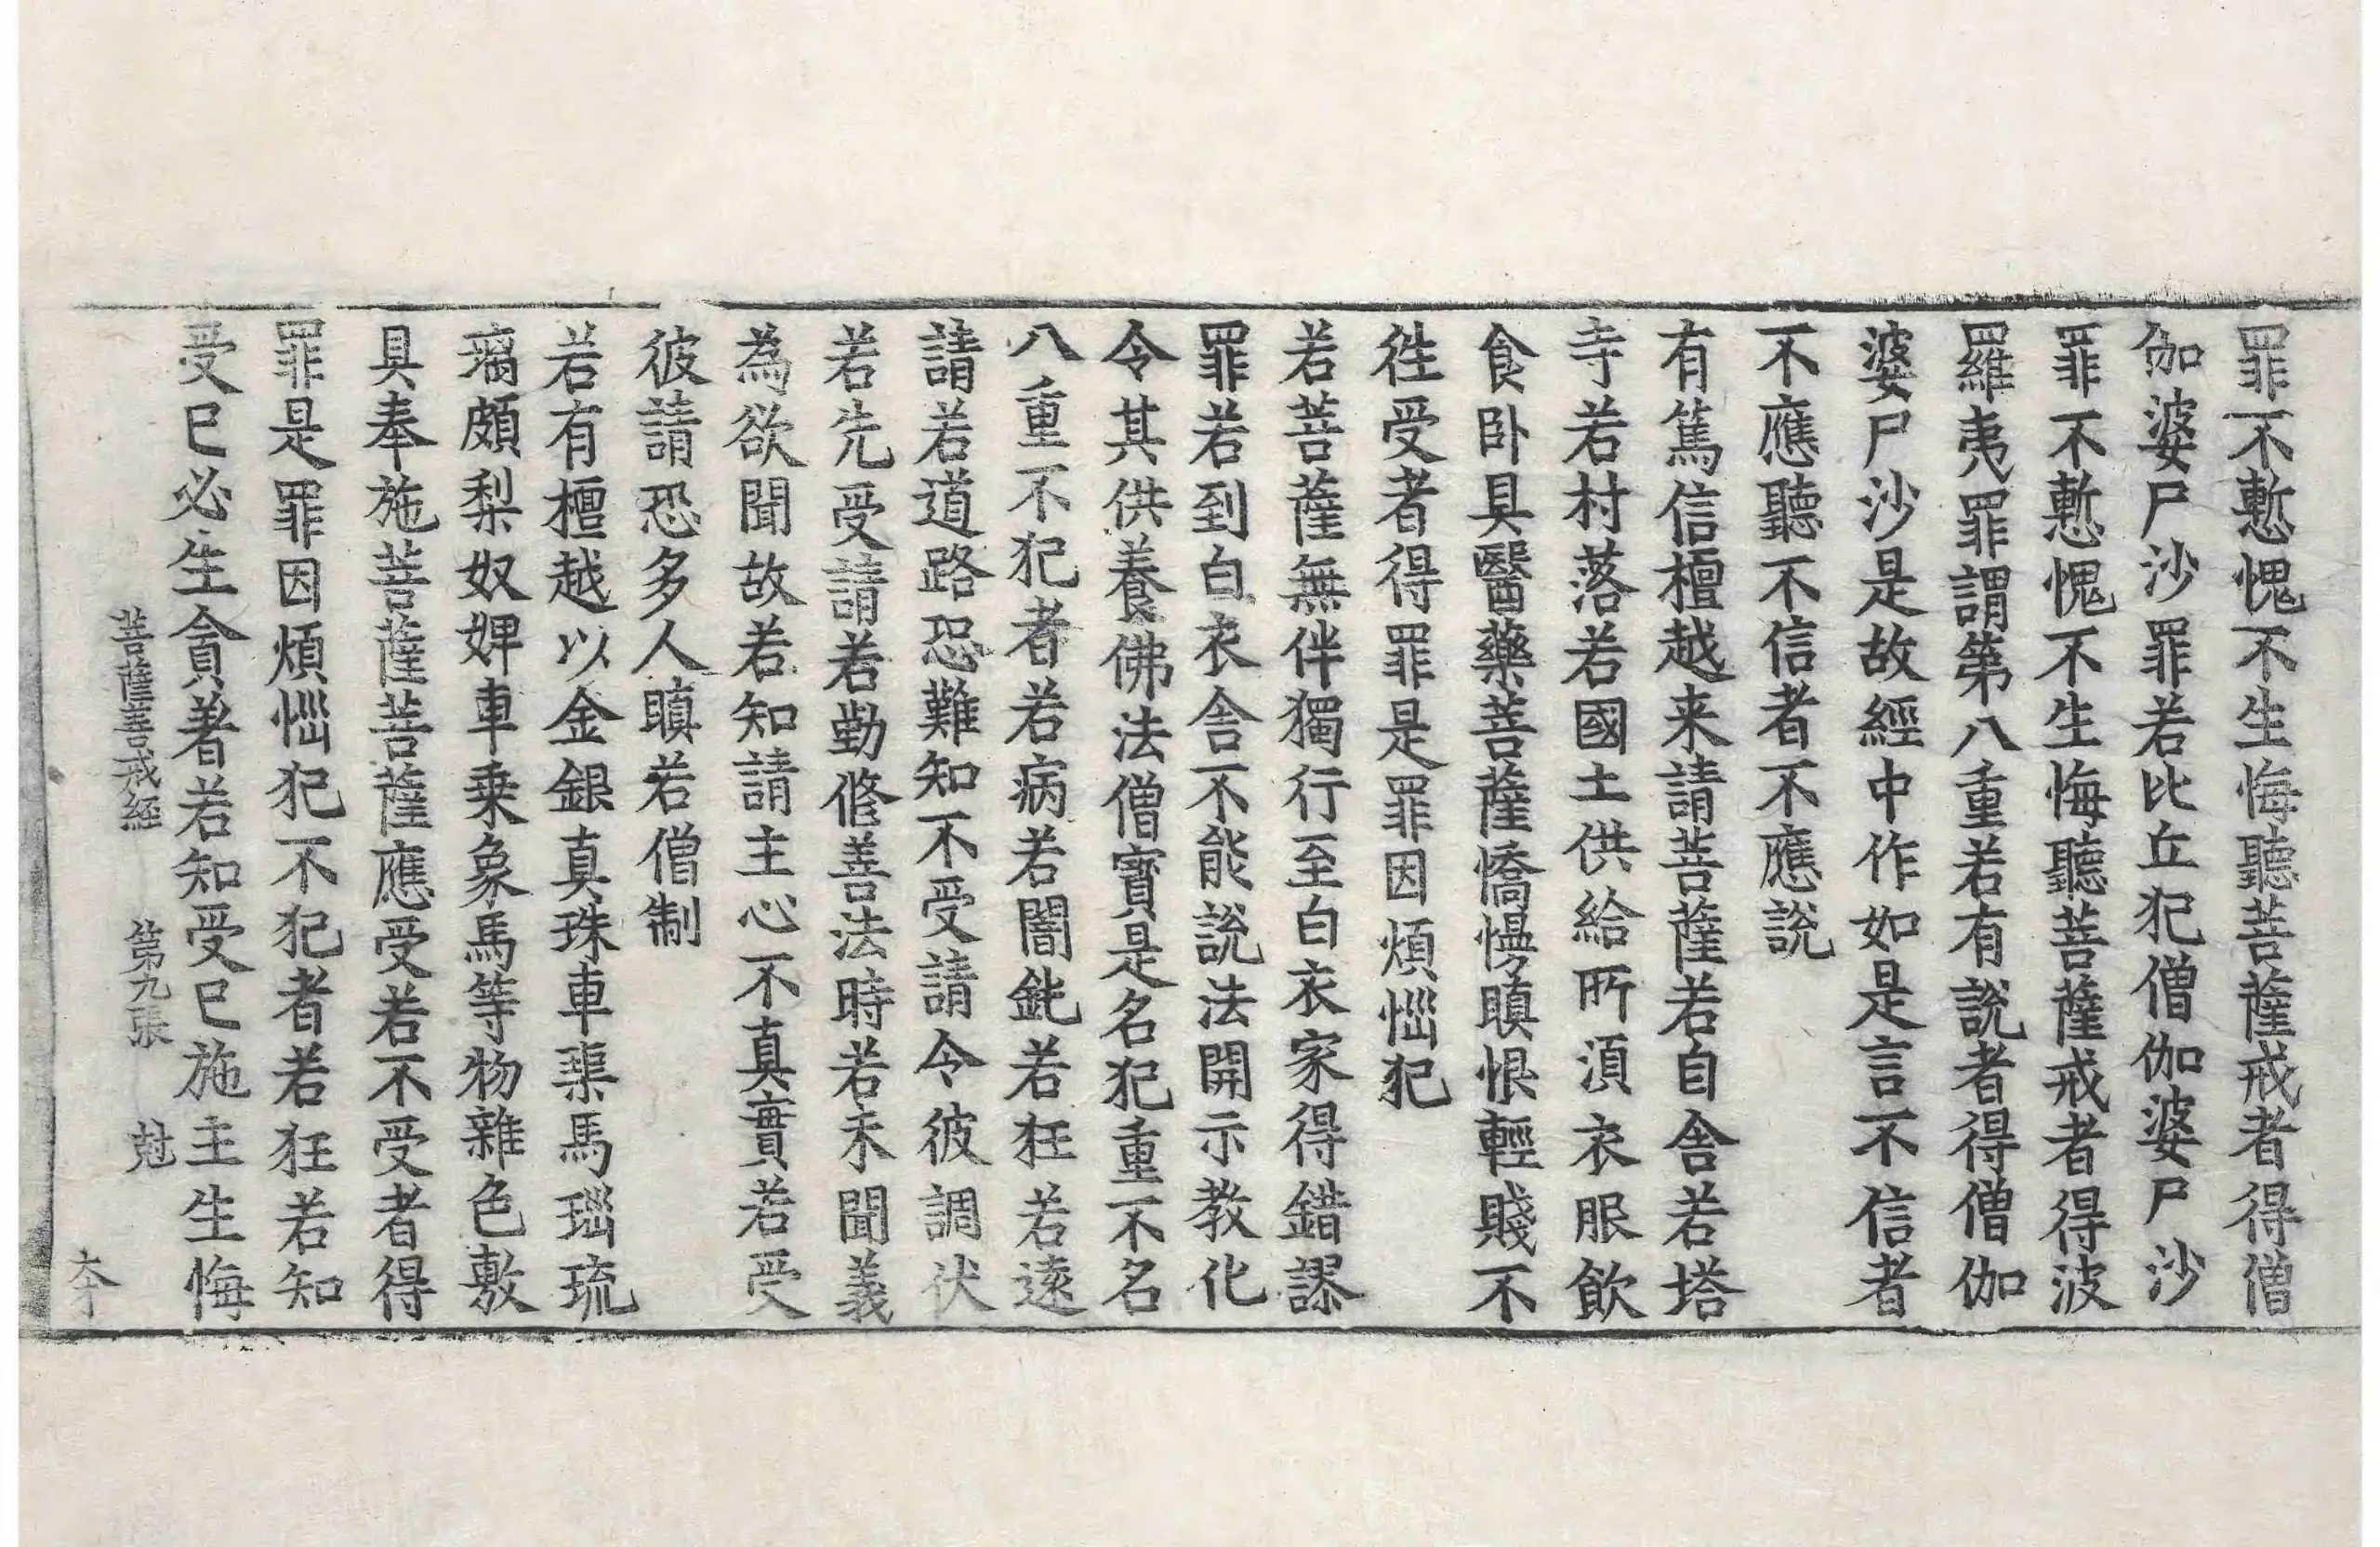 罪不慙愧不生悔聽菩薩戒者得僧
伽婆尸沙罪若比丘犯僧伽婆尸沙
罪不慙愧不生悔聽菩薩戒者得波
羅夷罪謂第八重若有說者得僧伽
婆尸沙是故經中作如是言不信者
不應聽不信者不應說
有篤信檀越来請菩薩若自舍若塔
寺若村落若國土供給所湏衣服飲
食卧具醫藥菩薩憍慢瞋恨輕賤不
徃受者得罪是罪因煩惱犯
若菩薩無伴獨行至白衣家得錯謬
罪若到白衣舍不能說法開示教化
令其供養佛法僧寶是名犯重不名
八重不犯者若病若闇鈍若狂若遠
請若道路恐難知不受請令彼調伏
若先受請若勤修善法時若未聞義
為欲聞故若知請主心不真實若受
彼請恐多人瞋若僧制
若有檀越以金銀真珠車𤦲馬瑙琉
璃頗梨奴婢車乗象馬等物雜色敷
具奉施菩薩菩薩應受若不受者得
罪是罪因煩惱犯不犯者若狂若知
受已必生貪著若知受已施主生悔
菩薩善戒經 第九張 尅